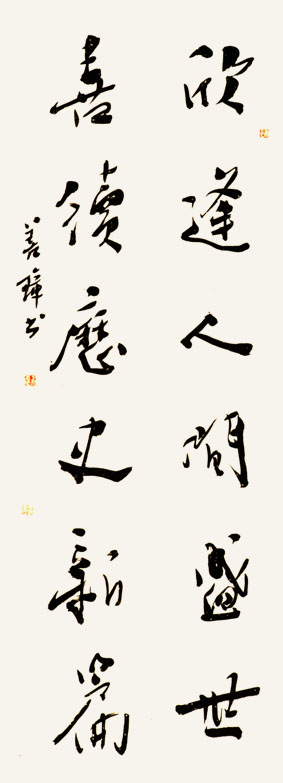 欣逢人間盛世
喜續歷史新篇
善璋书